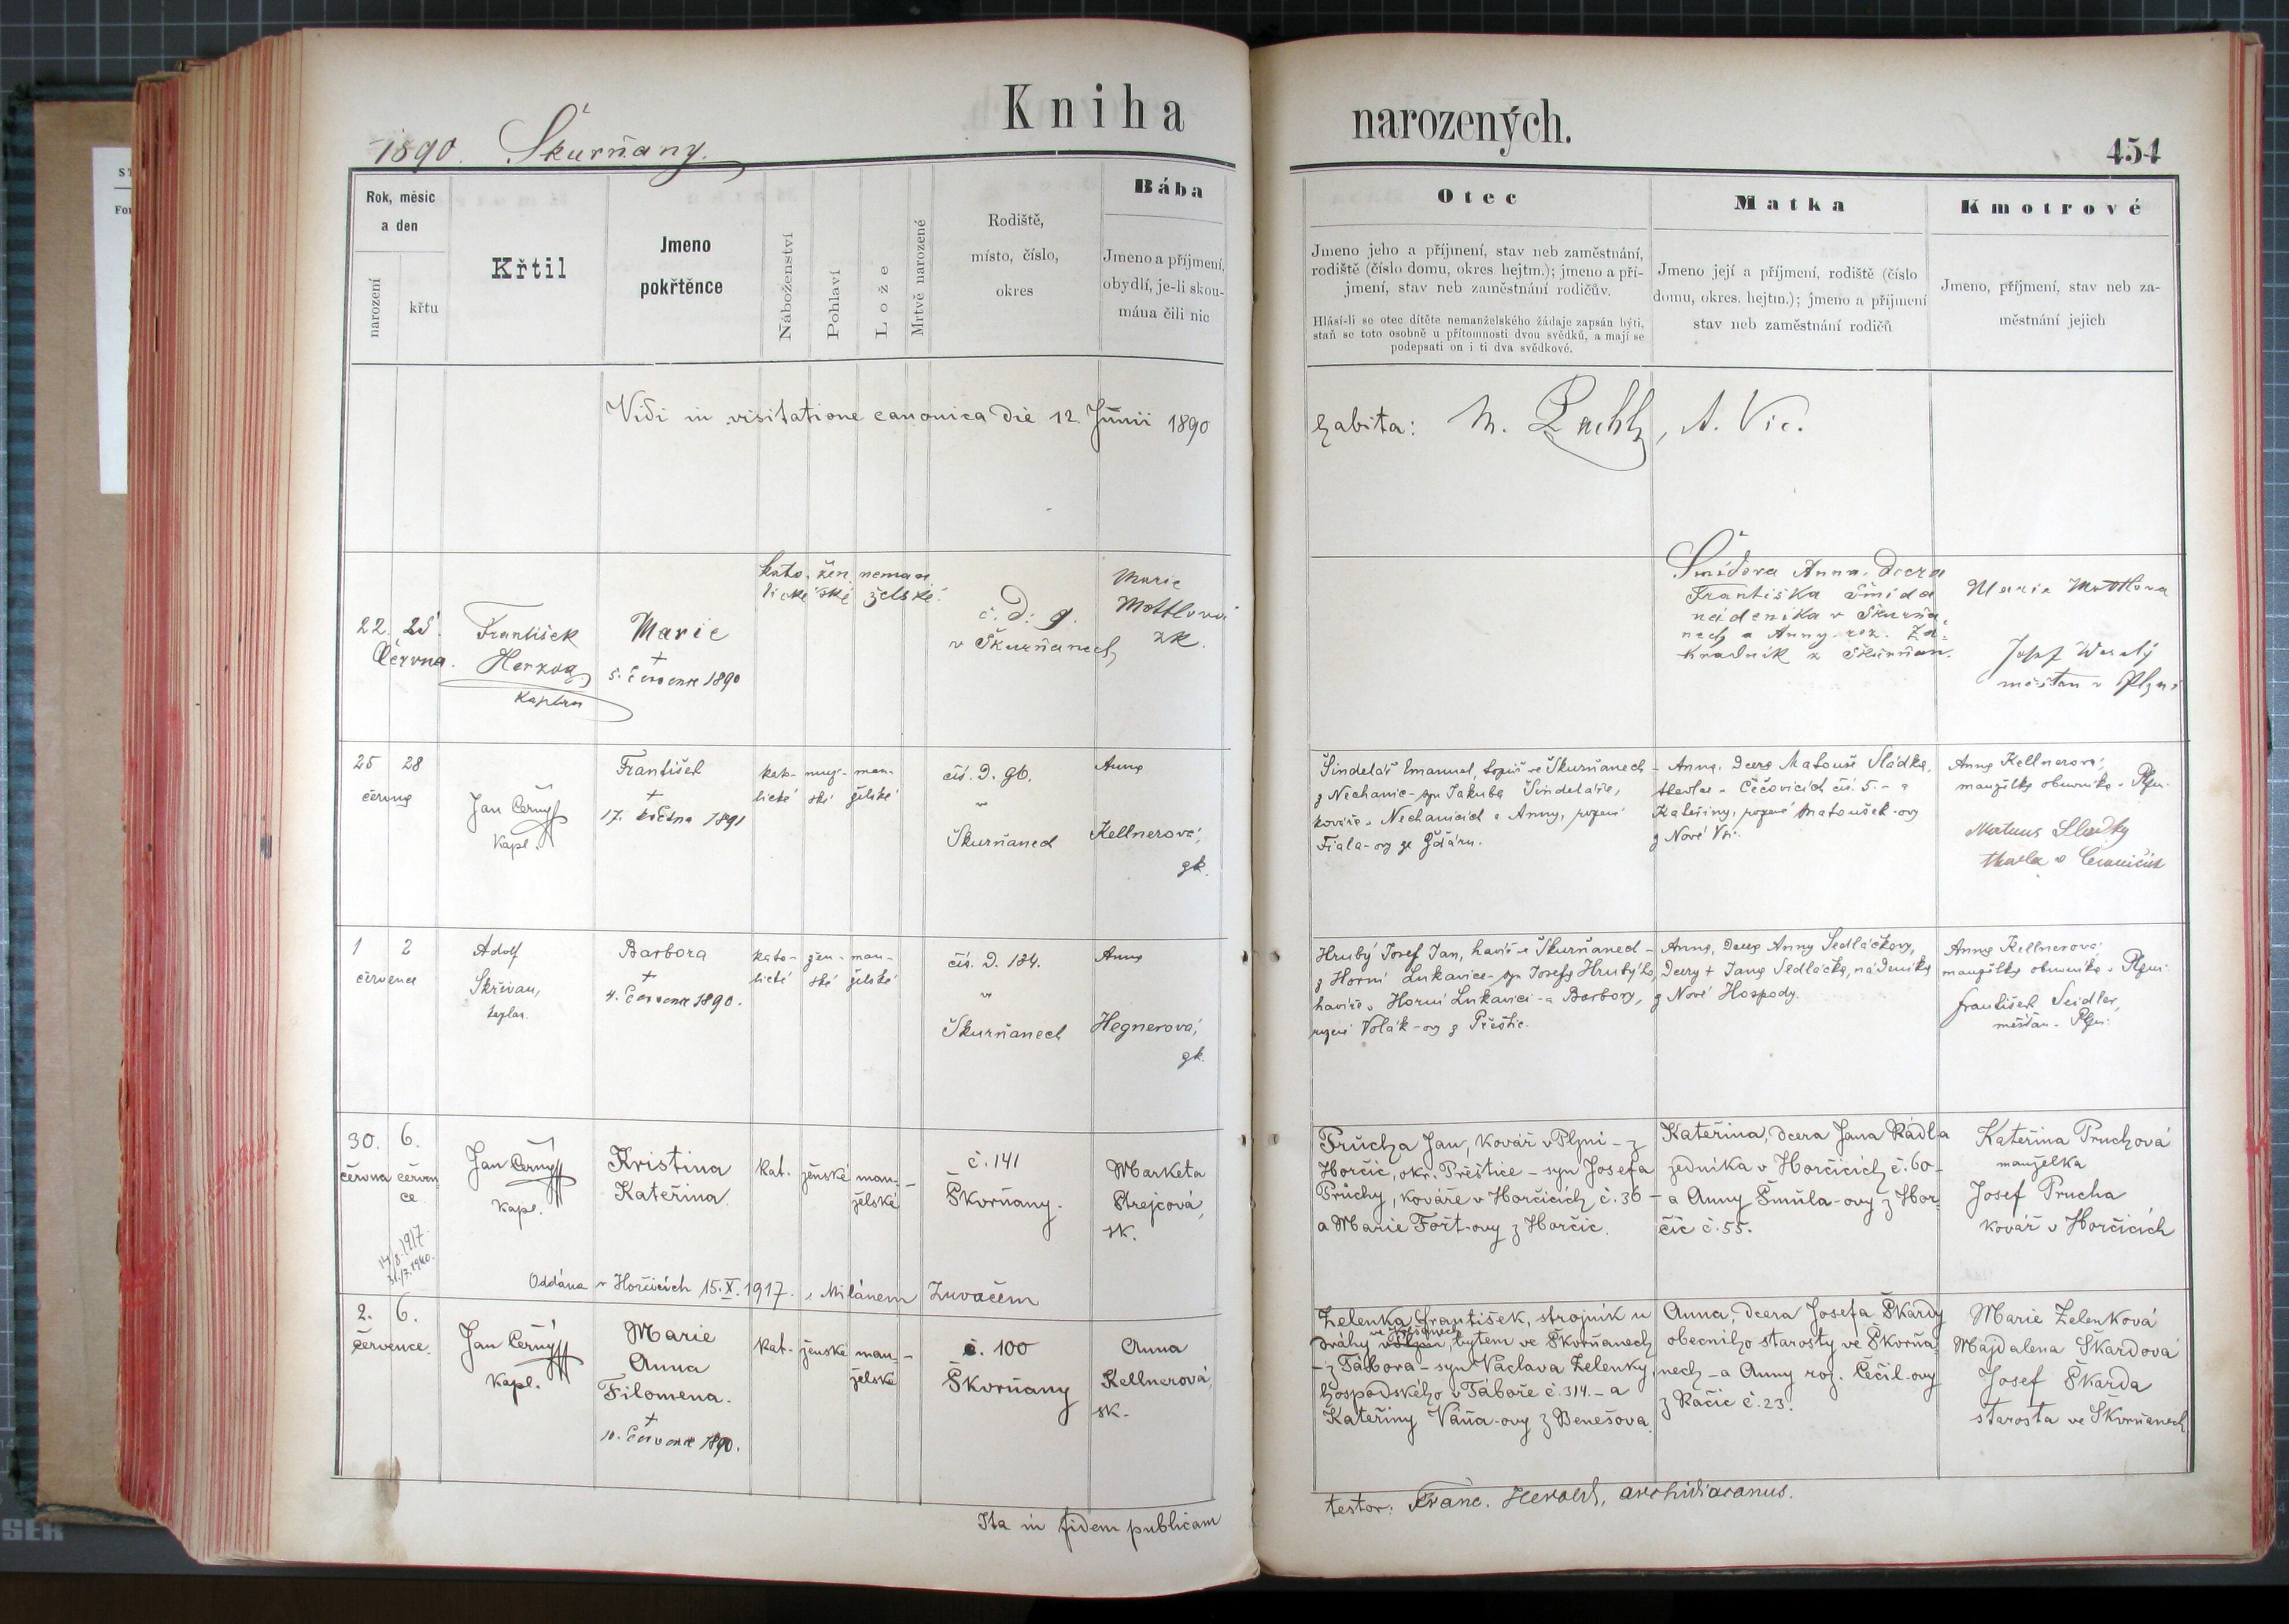 Kniha
narozených.
1890. Škurňany.
454
Rok, měsíc
a den
narození
křtu
Křtil
Jmeno
pokřtěnce
Náboženství
Pohlaví
Lože
Mrtvě narozené
Rodiště,
místo, číslo,
okres
Bába
Jmeno a příjmení,
obydlí, je-li skou-
mána čili nic
Otec
Jmeno jeho a příjmení, stav neb zaměstnání,
rodiště (číslo domu, okres. hejtm.); jmeno a pří-
jmení, stav neb zaměstnání rodičův.
Hlásí-li se otec dítěte nemanželského žádaje zapsán býti,
staň se toto osobně u přítomnosti dvou svědků, a mají se
podepsati on i ti dva svědkové.
Matka
Jmeno její a příjmení, rodiště (číslo
domu, okres. hejtm.); jmeno a příjmení
stav neb zaměstnání rodičů
Kmotrové
Jmeno, příjmení, stav neb za-
městnání jejich
Vidi in visitatione canonica die 12 Junii 1890
habita: A. Vic.
22. 25.
Června.
František
Herzog
kaplan
Marie
+
5. července 1890
kato- žen neman
lické ské želské
č. d. 9.
v Škurňanech
Marie
Mottlová
zk.
Šmídova Anna, dcera
Františka Šmída
nádeníka v Škurňa-
nech a Anny roz. Za-
hradník z Škurňan.
Marie Mottlova
Josef Weselý
měšťan v Plzni
25 28
června
Jan Černý
Kapl.
František
+
17. května 1891
kato- muž- man-
lické ské želské
čís. d. 96.
v
Škurňanech
Anna
Kellnerová,
zk.
Šindelář Emanuel, topič ve Škurňanech -
z Nechanic - syn Jakuba Šindeláře,
kováře v Nechanicích a Anny, rozené
Fiala-ovy ze Žďáru.
Anna, dcera Matouše Sládka,
tkalce v Čečovicích čís. 5. - a
Kateřiny, rozené Matoušek-ovy
z Nové Vsi.
Anna Kellnerová,
manželka obuvníka v Plzni
Matous Sladky
1 2
července
Adolf
Skřivan,
kaplan.
Barbora
+
4. července 1890.
kato- žen- man-
lické ské želské
čís. d. 184.
v
Škurňanech
Anna
Hegnerová,
zk.
Hrubý Josef Jan, havíř v Škurňanech -
z Horní Lukavice - syn Josefa Hrubýho,
havíře v Horní Lukavici - a Barbory,
rozené Volák-ovy z Přeštic.
Anna, dcera Anny Sedláčkovy,
dcery + Jana Sedláčka, nádeníka
z Nové Hospody.
Anna Kellnerová
manželka obuvníka v Plzni
František Seidler,
měšťan v Plzni.
30. 6.
června červen-
ce
14/8. 1917.
31./7. 1940.
Jan Černý
kapl.
Kristina
Kateřina.
kat. ženské man- -
želské
č. 141
Škvrňany.
Marketa
Strejcová,
zk.
Průcha Jan, kovář v Plzni - z
Horčic, okr. Přeštice - syn Josefa
Průchy, kováře v Horčicích č. 36 -
a Marie Fořt-ovy z Horčic.
Kateřina, dcera Jana Rádla
zedníka v Horčicích č. 60 -
a Anny Šmůla-ovy z Hor-
čic č. 55.
Kateřina Pruchová
manželka
Josef Prucha
kovář v Horčicích
Oddána v Horčicích 15.X.1917. s Milánem Zuvačem
2. 6.
července.
Jan Černý
kapl.
Marie
Anna
Filomena.
+
10. července 1890.
kat. ženské man- -
želské
č. 100
Škvrňany
Anna
Kellnerová,
zk.
Zelenka František, strojník u
dráhy, bytem ve Škvrňanech
- z Tábora - syn Václava Zelenky,
hospodského v Táboře č. 314. - a
Kateřiny Váňa-ovy z Benešova.
Anna, dcera Josefa Škardy
obecního starosty ve Škvrňa-
nech - a Anny roz. Čečil-ovy
z Račic č. 23.
Marie Zelenková
Majdalena Škardová
Josef Škarda
starosta ve Škvrňanech
Ita in fidem publicam
testor: Franc. Herold, archidiaconus.